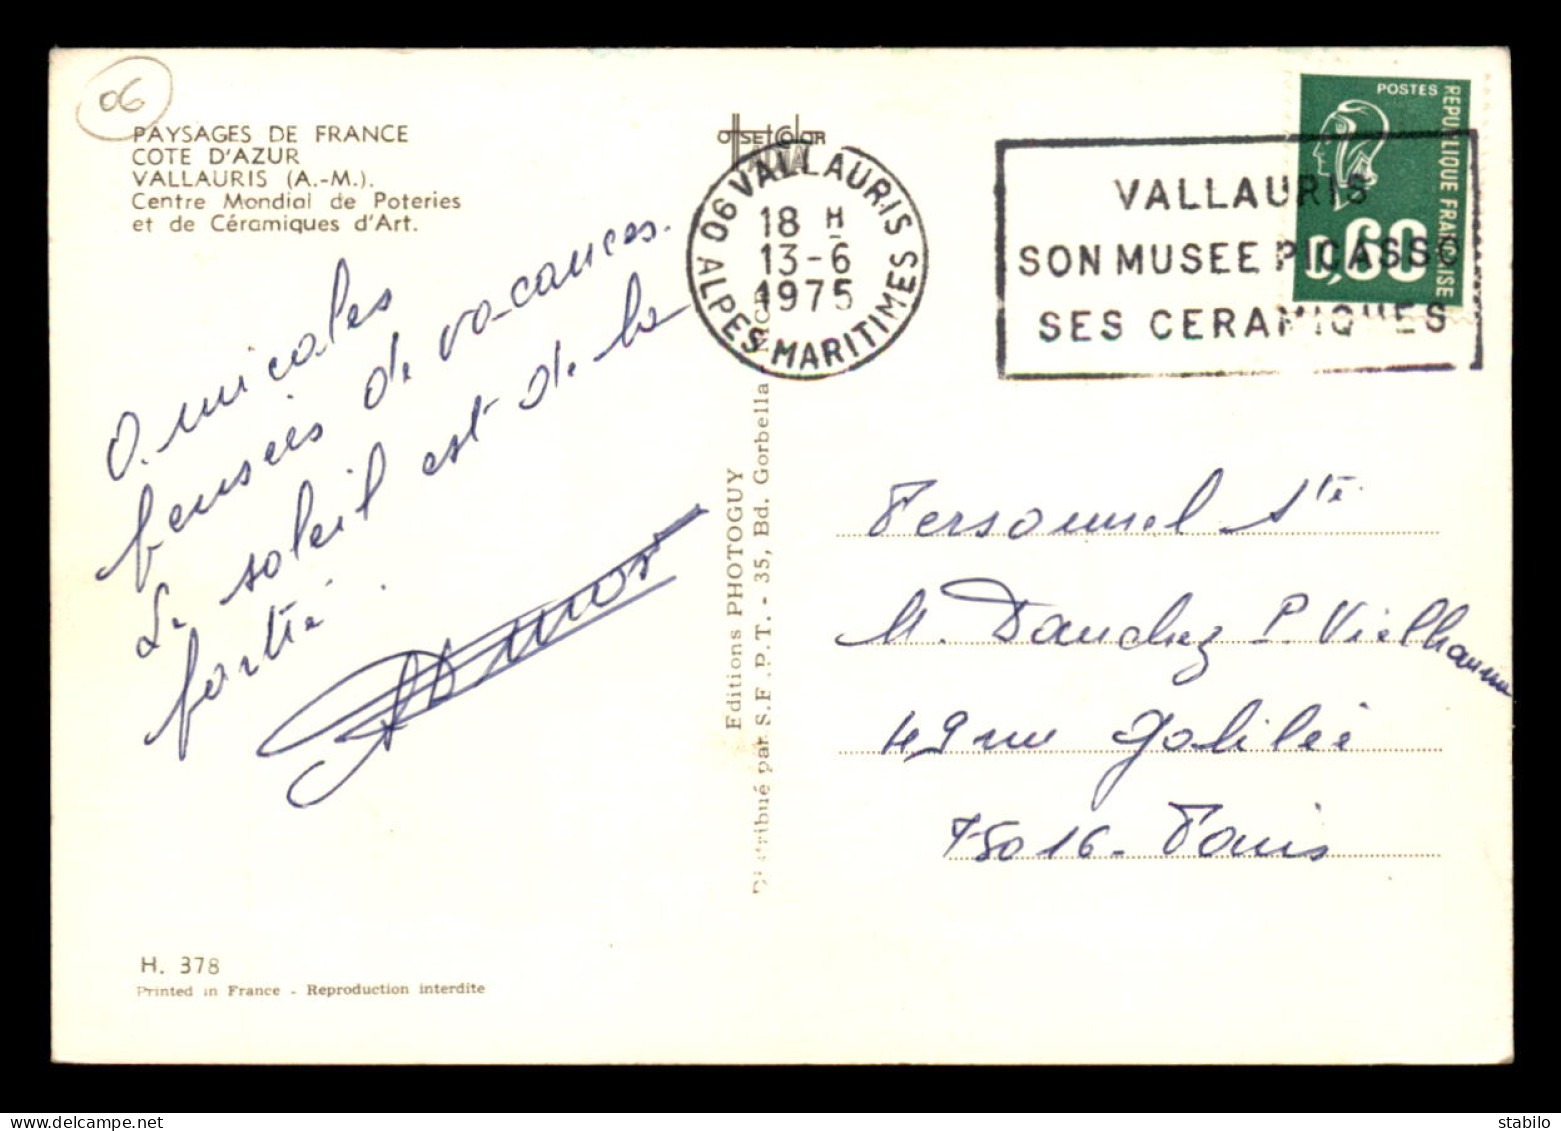 06
PAYSAGES DE FRANCE
COTE D'AZUR
VALLAURIS (A.-M.).
Centre Mondial de Poteries
et de Céramiques d'Art.
Amicales
pensées de vacances.
Le soleil est de la
partie.
H. 378
Printed in France - Reproduction interdite
OffsetColor
06 VALLAURIS
18 H
13-6
1975
ALPES MARITIMES
VALLAURIS
SON MUSEE PICASSO
SES CERAMIQUES
POSTES
REPUBLIQUE FRANCAISE
0,60
Editions PHOTOGUY
Distribué par S.F.P.T. - 35, Bd. Gorbella
Personnel Sté
M. Danchez P. Vielhomme
49 rue Galilée
75016 - Paris
stabilo